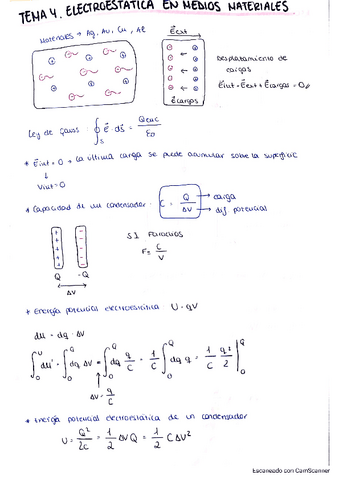 TEMA 4. ELECTROESTÁTICA EN MEDIOS MATERIALES
Materiales → Ag, Au, Cu, Al
E⃗ext
Desplazamiento de cargas
E⃗int = E⃗ext + E⃗cargas = 0
E⃗cargas
Ley de Gauss : ∮s E⃗ · dS⃗ = Qenc / ε0
* E⃗int = 0 → La última carga se puede acumular sobre la superficie
↓
Vint = 0
* Capacidad de un condensador : C = Q / ΔV → carga → dif potencial
S.I Faradios
F = C / V
Q -Q
ΔV
* Energía potencial electroestática U = qV
dU = dq · ΔV
∫₀ᵁ dU = ∫₀Q dq ΔV = ∫₀Q dq q/C = 1/C ∫₀Q dq q = 1/C q²/2 |₀Q
ΔV = q/C
* Energía potencial electroestática de un condensador
U = Q²/2C = 1/2 ΔV Q = 1/2 C ΔV²
Escaneado con CamScanner